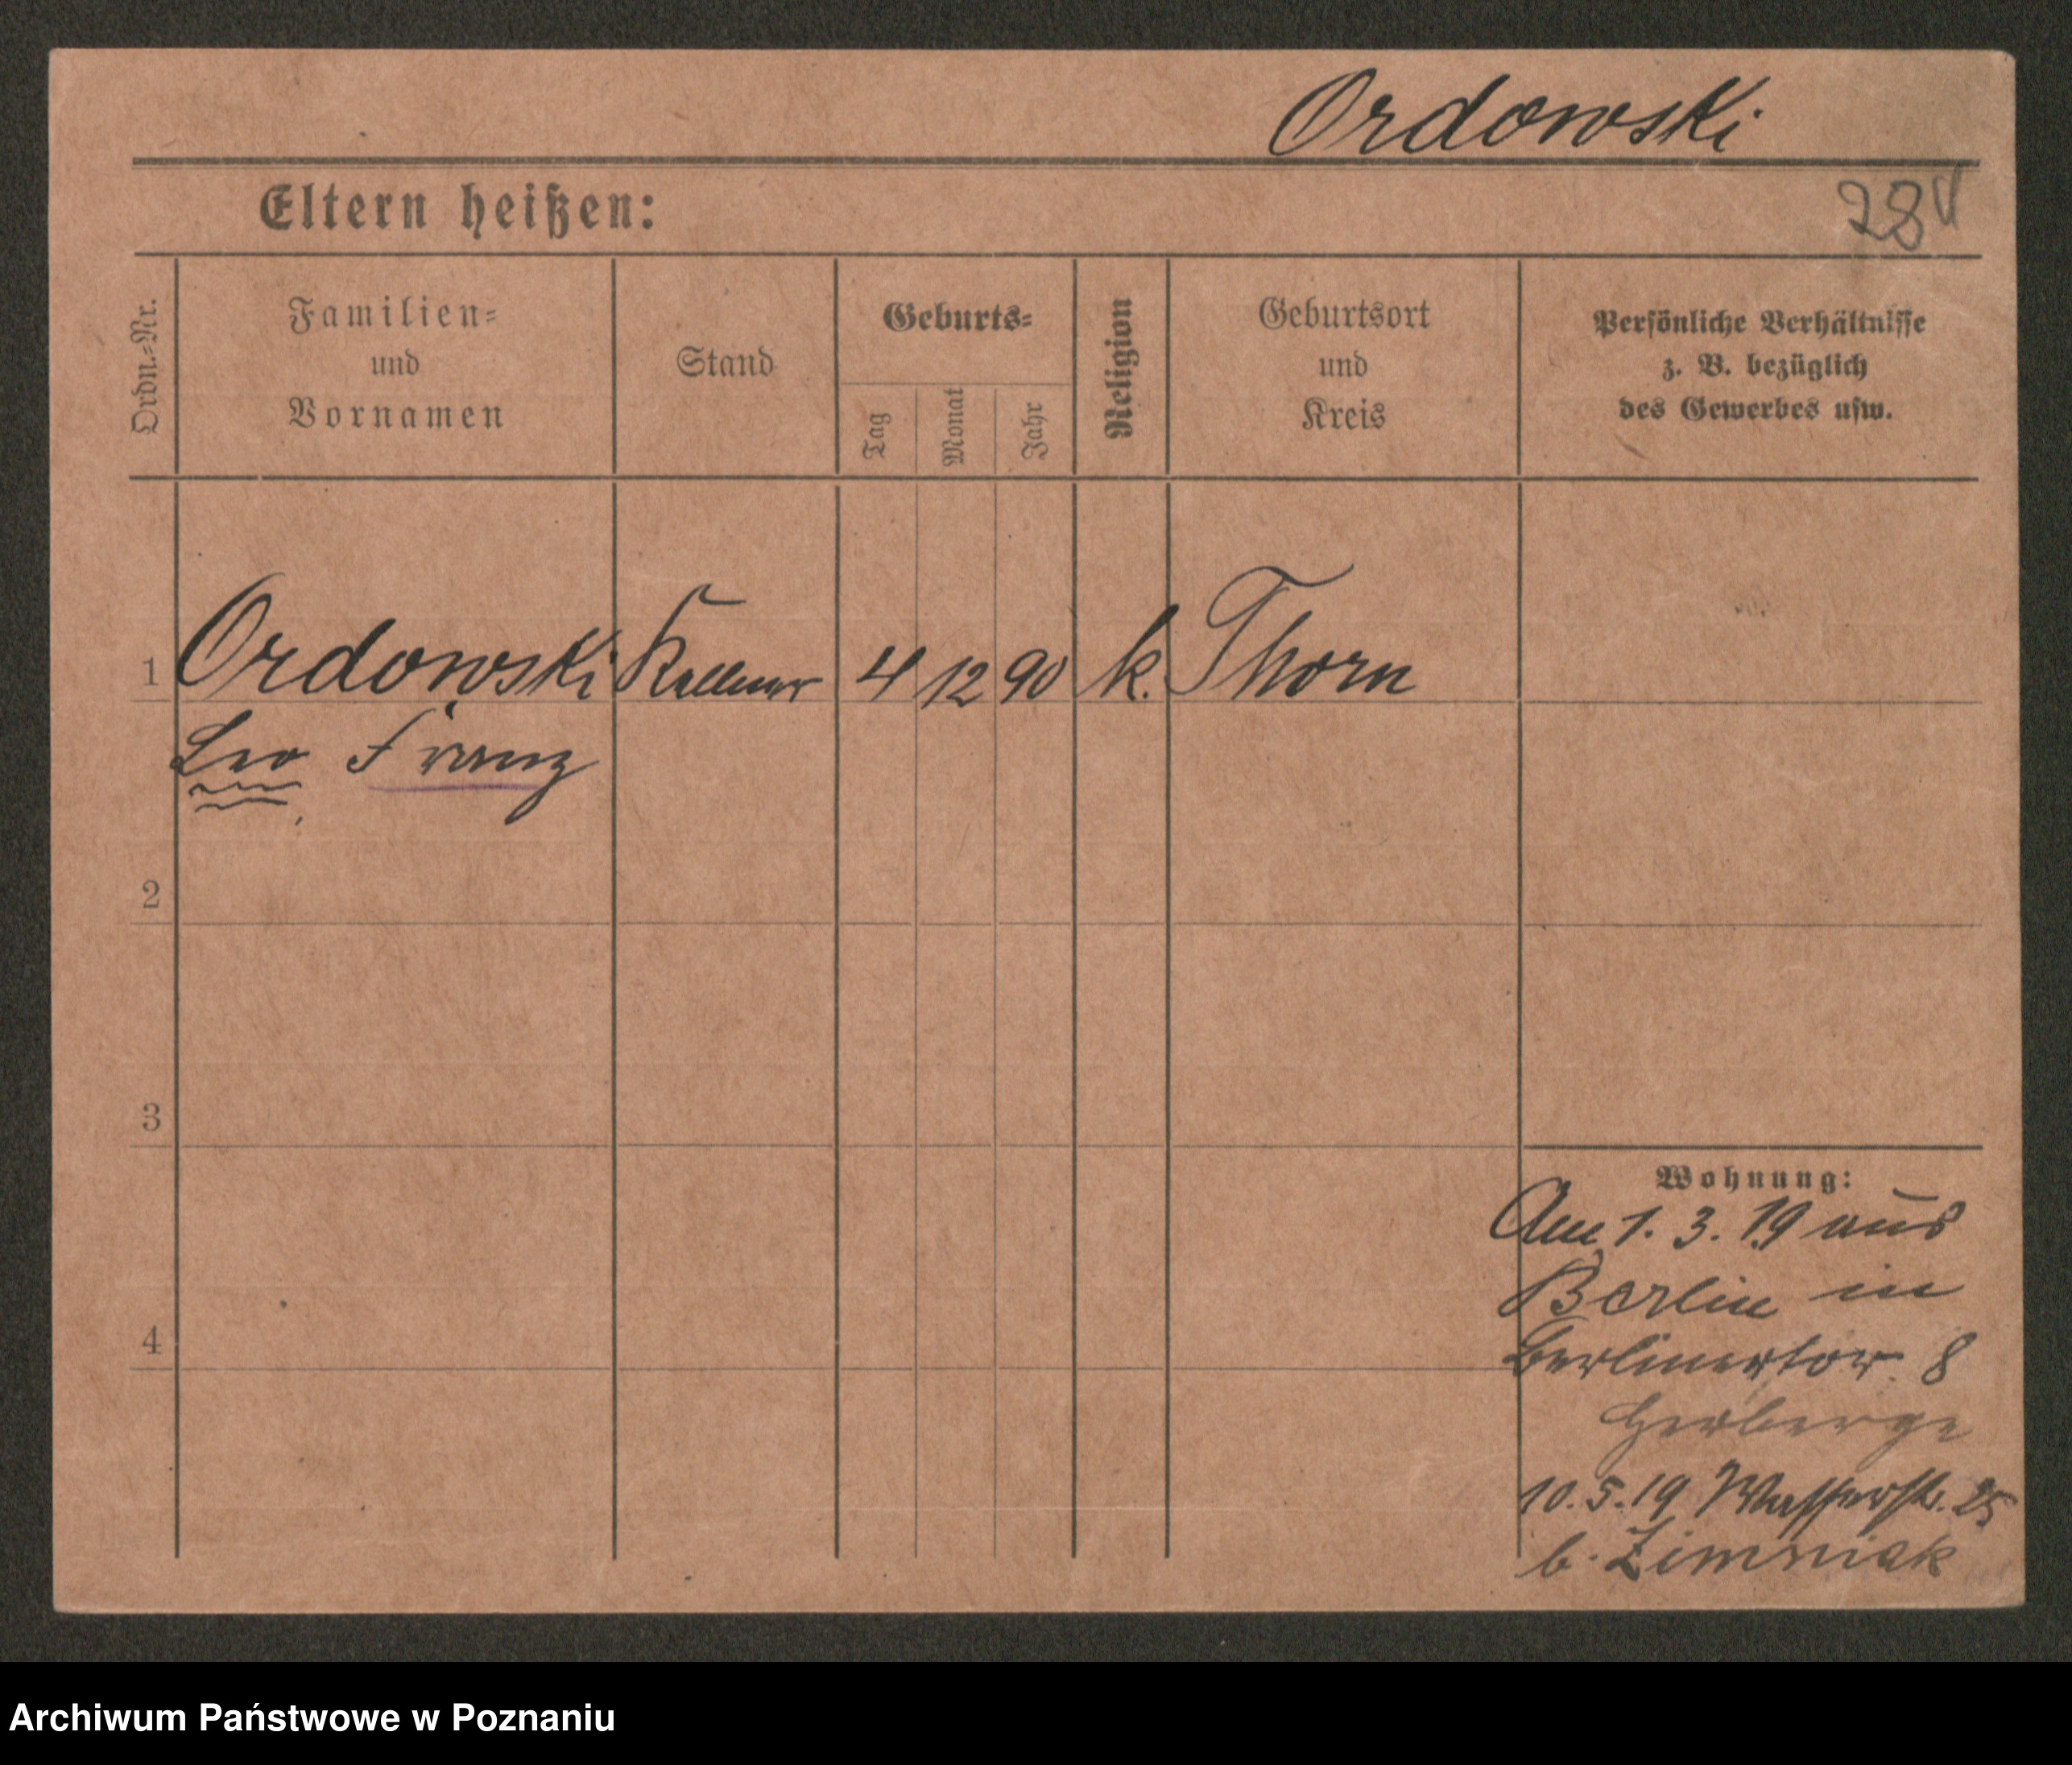 Ordowski
Eltern heißen:
28
Ordn.-Nr.
Familien-
und
Vornamen
Stand
Geburts-
Tag
Monat
Jahr
Religion
Geburtsort
und
Kreis
Persönliche Verhältnisse
z. B. bezüglich
des Gewerbes usw.
1 Ordowski Kellner 4 12 90 k. Thorn
Leo Franz
2
3
4
Wohnung:
Am 1. 3. 19 aus
Berlin in
Berlinertor 8
Herberge
10. 5. 19 Wasserstr. 25
b. Zimniak
Archiwum Państwowe w Poznaniu